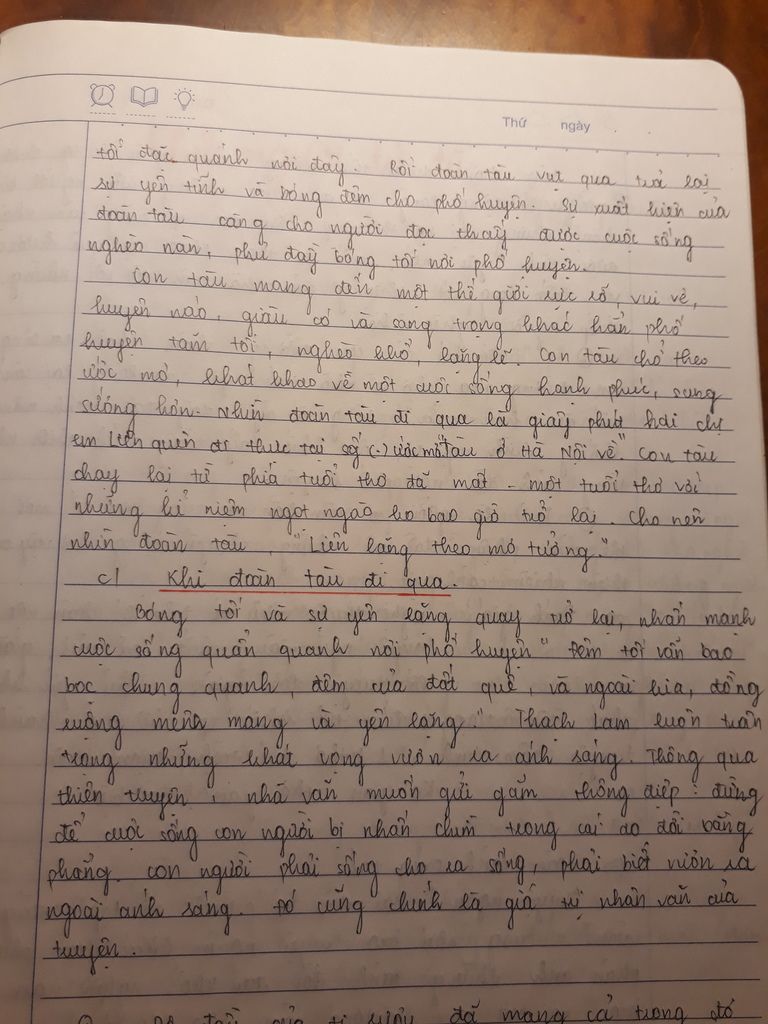 Thứ ngày
tối đặc quánh nơi đây. Rồi đoàn tàu vụt qua trả lại
sự yên tĩnh và bóng đêm cho phố huyện. Sự xuất hiện của
đoàn tàu càng cho người đọc thấy được cuộc sống
nghèo nàn, phủ đầy bóng tối nơi phố huyện.
Con tàu mang đến một thế giới rực rỡ, vui vẻ,
huyên náo, giàu có và sang trọng khác hẳn phố
huyện tăm tối, nghèo khổ, lặng lẽ. Con tàu chở theo
ước mơ, khát khao về một cuộc sống hạnh phúc, sung
sướng hơn. Nhìn đoàn tàu đi qua là giây phút hai chị
em Liên quên đi thực tại số (-) ước mơ "Tàu ở Hà Nội về". Con tàu
chạy lại từ phía tuổi thơ đã mất - một tuổi thơ với
những kỉ niệm ngọt ngào ko bao giờ trở lại. Cho nên
nhìn đoàn tàu, "Liên lặng theo mơ tưởng."
c/ Khi đoàn tàu đi qua.
Bóng tối và sự yên lặng quay trở lại, nhấn mạnh
cuộc sống quẩn quanh nơi phố huyện "Đêm tối vẫn bao
bọc chung quanh, đêm của đất quê, và ngoài kia, đồng
ruộng mênh mang và yên lặng." Thạch Lam luôn trân
trọng những khát vọng vươn ra ánh sáng. Thông qua
thiên truyện, nhà văn muốn gửi gắm thông điệp: đừng
để cuộc sống con người bị nhấn chìm trong cái ao đời bằng
phẳng. con người phải sống cho ra sống, phải biết vươn ra
ngoài ánh sáng. Đó cũng chính là giá trị nhân văn của
truyện.
đã mang cả trong đó